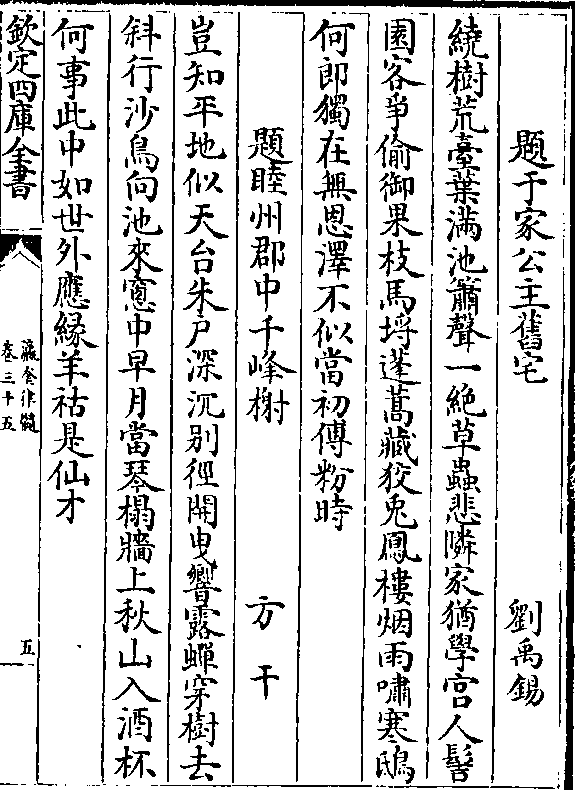 題于家公主舊宅 劉禹錫
繞樹荒臺葉滿池簫聲一絶草蟲悲隣家猶學宫人髻
園客爭偷御果枝馬埒蓬蒿藏狡兎鳳樓烟雨嘯寒鴟
何郎獨在無恩澤不似當初傅粉時
題睦州郡中千峰榭 方干
豈知平地似天台朱戸深沉别徑開曳響露蟬穿樹去
斜行沙鳥向池來窻中早月當琴榻牆上秋山入酒杯
何事此中如世外應縁羊祜是仙才
欽定四庫全書
瀛奎律髓
卷三十五
五